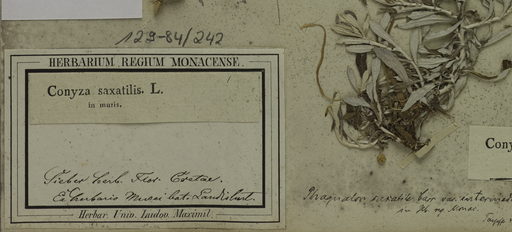 129-84/242
HERBARIUM REGIUM MONACENSE.
Conyza saxatilis. L.
in muris.
Sieber herb. Flor. Cretae.
Ex herbario Musei bat. Landishut.
Herbar. Univ. Ludov. Maximil.
Cony
Phagnalon saxatile var. intermed
in Hb reg. Monac.